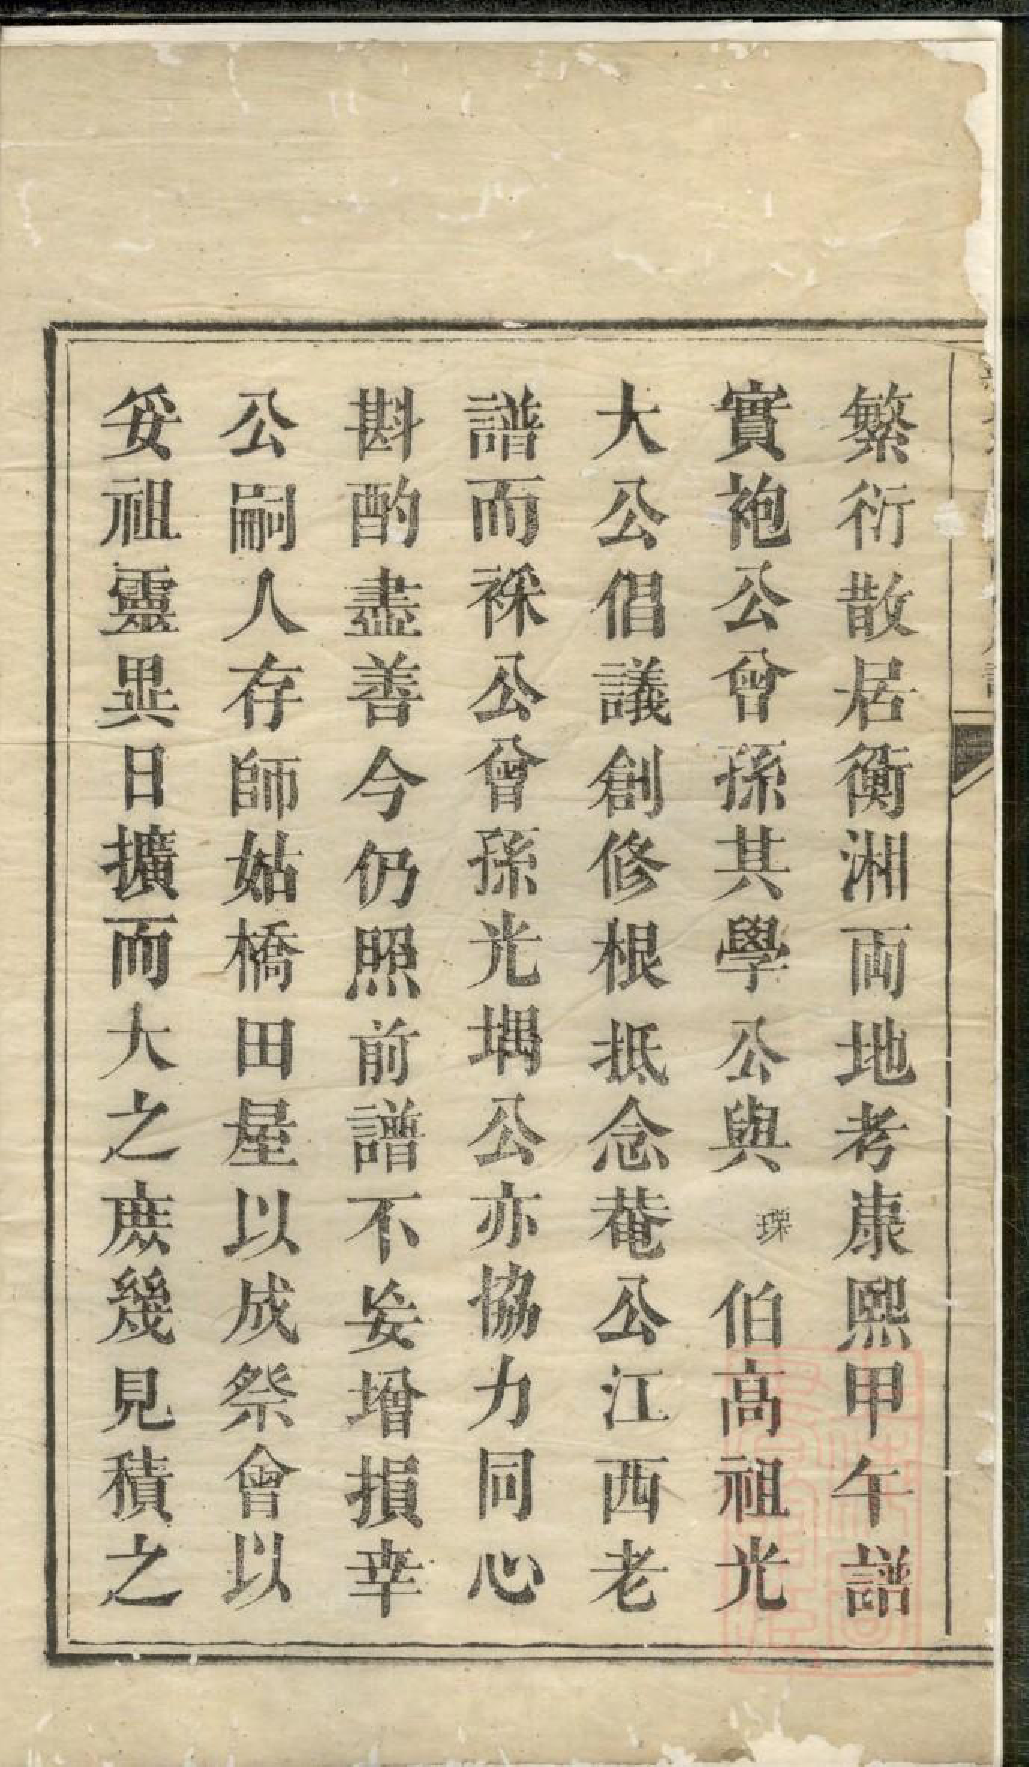 繁衍散居衡湘両地考康熙甲午譜
實袍公曾孫其學公與璨伯高祖光
大公倡議創修根抵念菴公江西老
譜而祿公曾孫光堣公亦協力同心
斟酌盡善今仍照前譜不妄增損幸
公嗣人存師姑橋田屋以成祭會以
妥祖靈異日擴而大之庶幾見積之